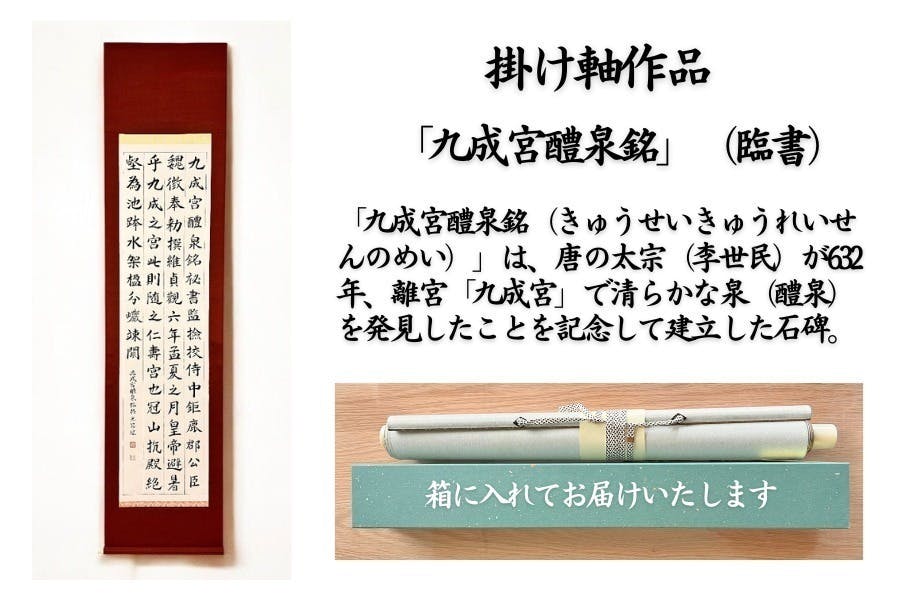 掛け軸作品
「九成宮醴泉銘」 (臨書)
「九成宮醴泉銘(きゅうせいきゅうれいせ
んのめい)」は、唐の太宗(李世民)が632
年、離宮「九成宮」で清らかな泉(醴泉)
を発見したことを記念して建立した石碑。
九成宮醴泉銘祕書監撿挍侍中鉅鹿郡公臣
魏徵奉勑撰維貞觀六年孟夏之月皇帝避暑
乎九成之宮此則隨之仁壽宮也冠山抗殿絕
壑為池跨水架楹分巗竦闕
箱に入れてお届けいたします